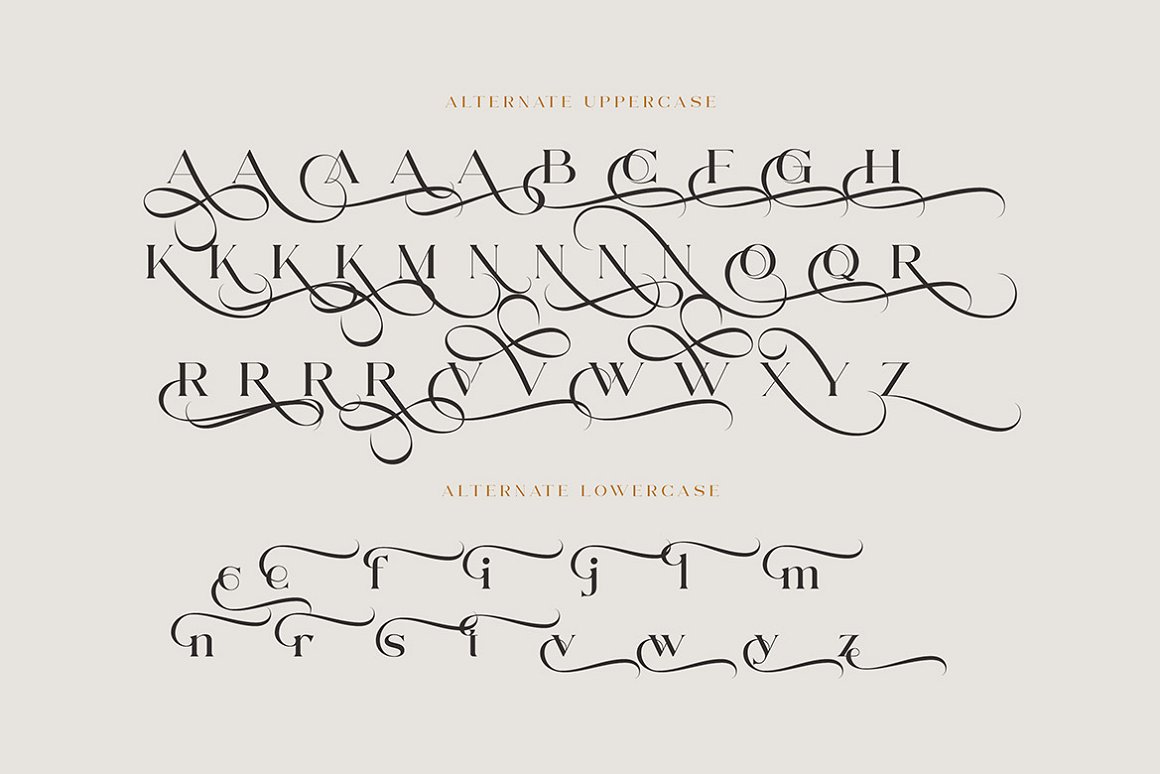 ALTERNATE UPPERCASE
A A A A A B C F G H
K K K K M N N N N O Q R
R R R R V V W W X Y Z
ALTERNATE LOWERCASE
c e f i j l m
n r s t v w y z